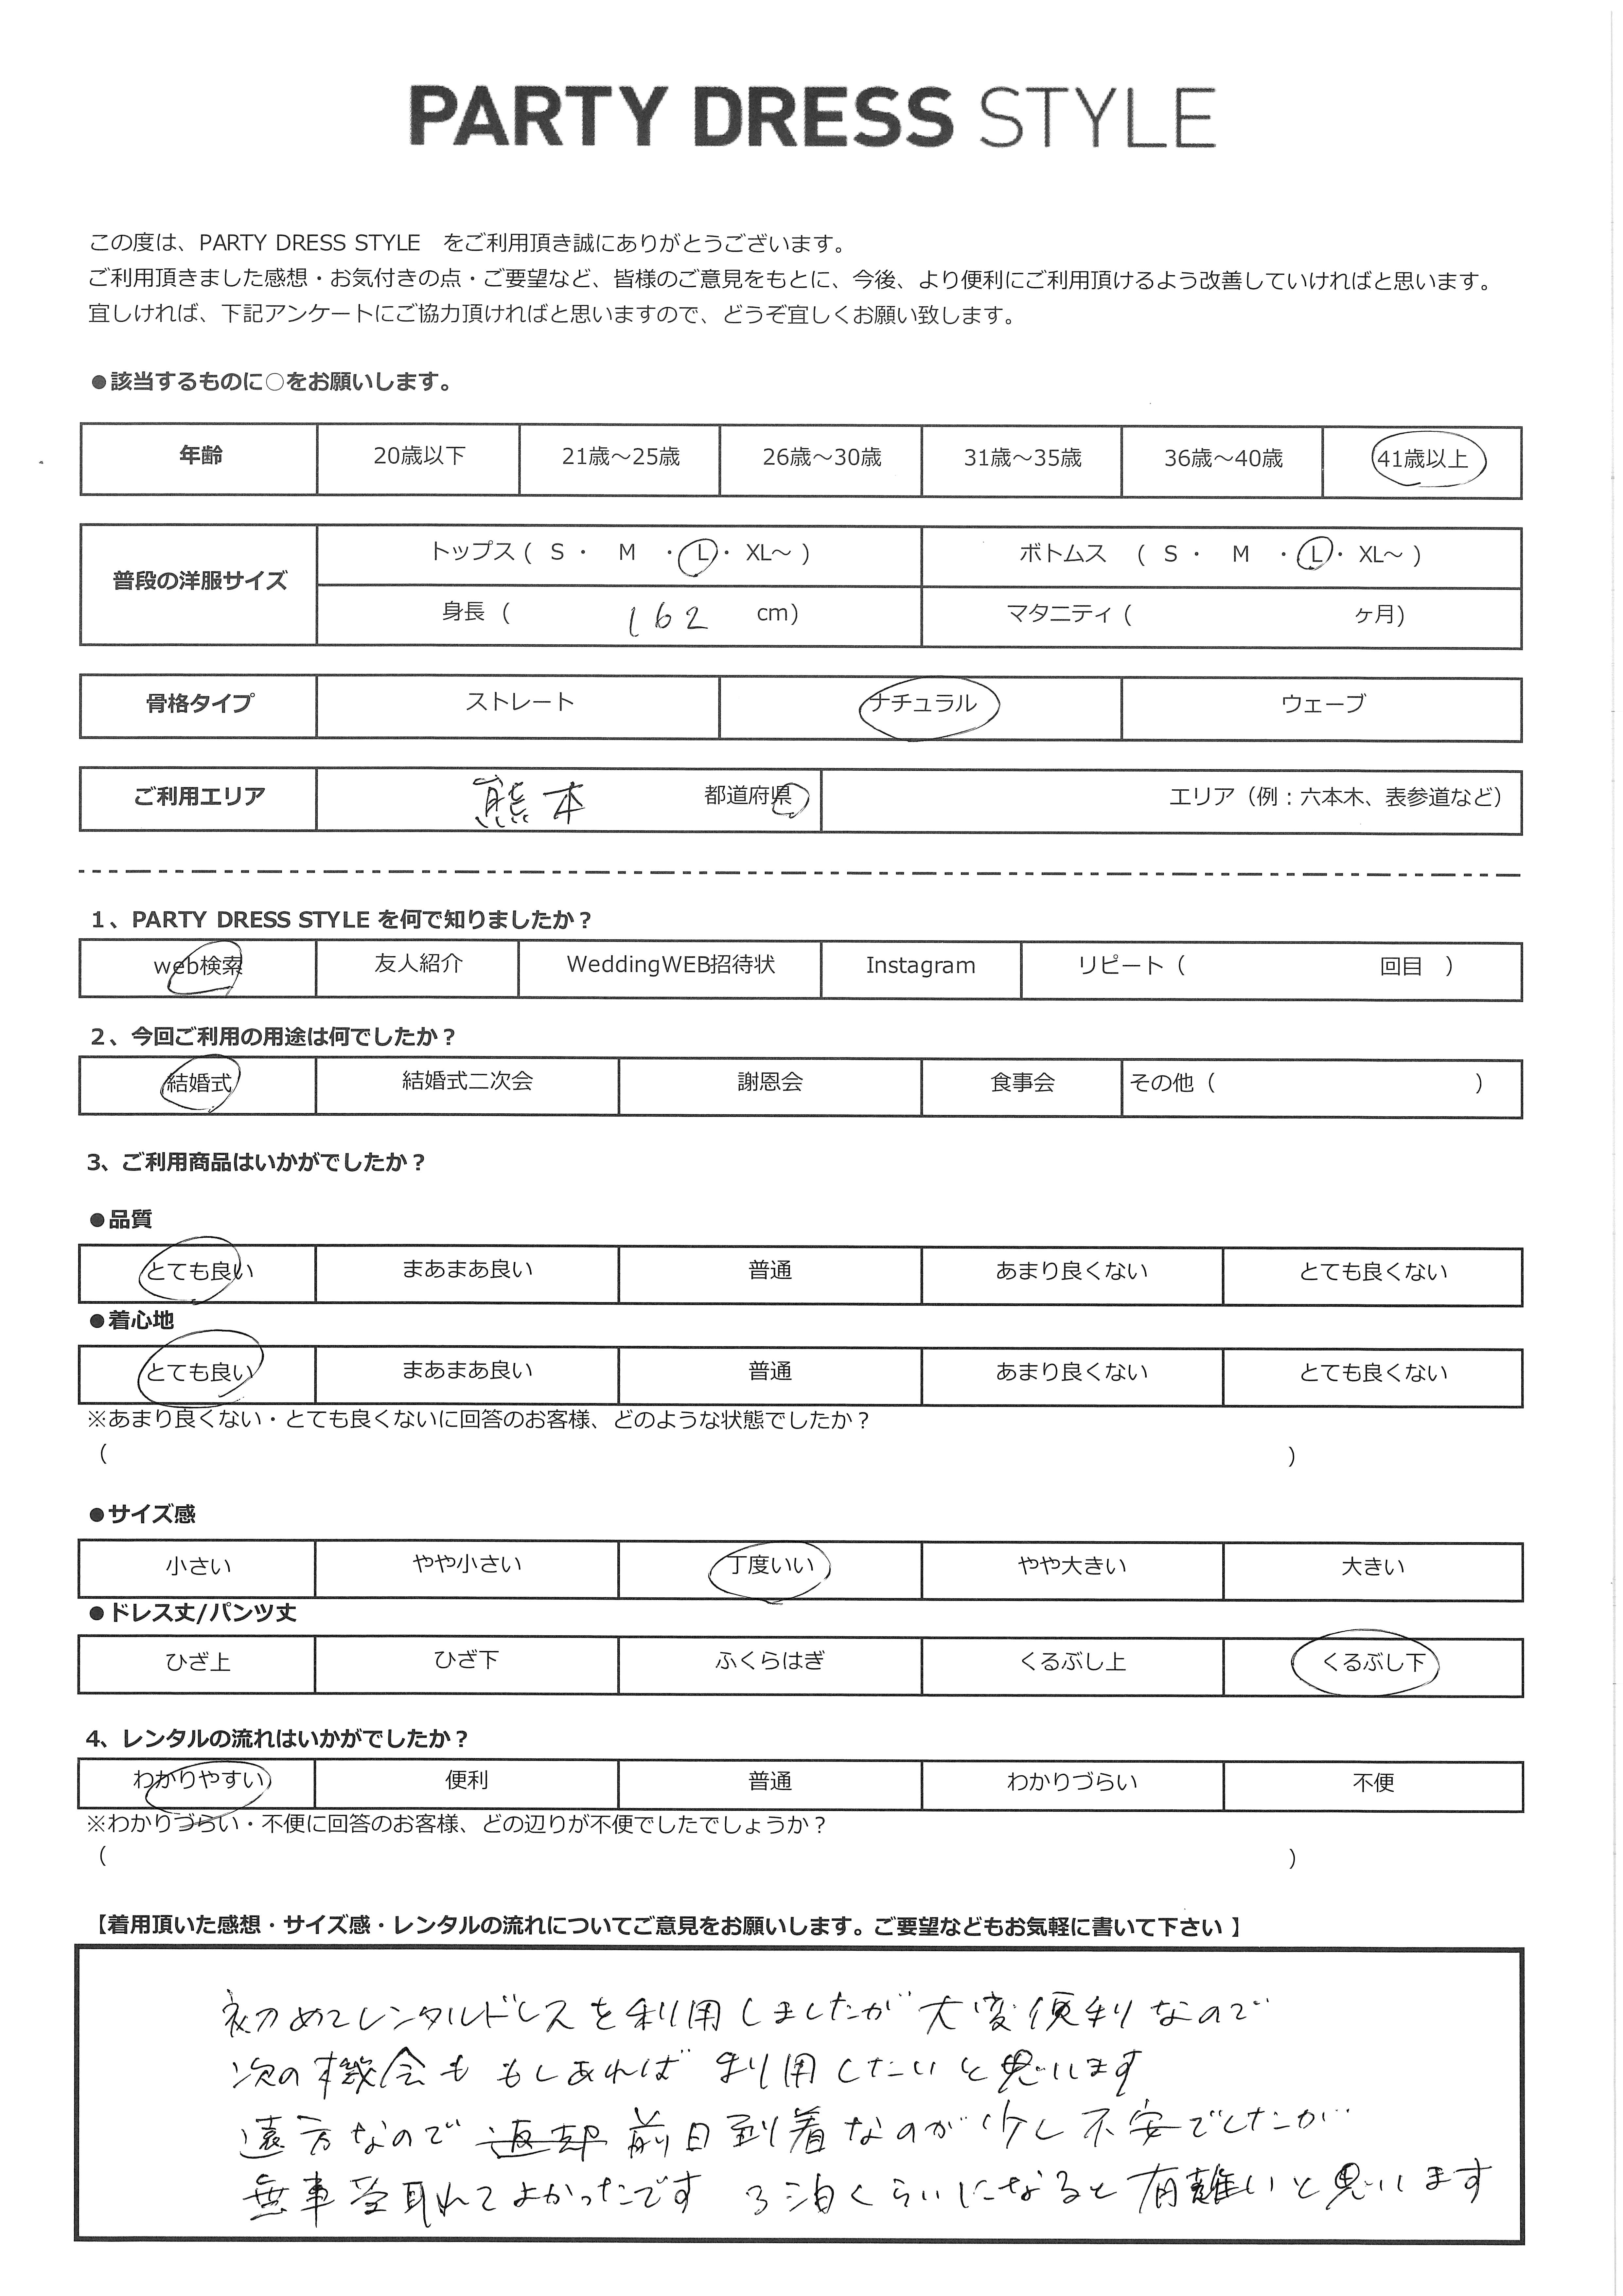 PARTY DRESS STYLE
この度は、PARTY DRESS STYLE　をご利用頂き誠にありがとうございます。
ご利用頂きました感想・お気付きの点・ご要望など、皆様のご意見をもとに、今後、より便利にご利用頂けるよう改善していければと思います。
宜しければ、下記アンケートにご協力頂ければと思いますので、どうぞ宜しくお願い致します。
●該当するものに○をお願いします。
年齢 20歳以下 21歳～25歳 26歳～30歳 31歳～35歳 36歳～40歳 41歳以上
普段の洋服サイズ
トップス ( S ・ M ・ L ・ XL～ ) ボトムス ( S ・ M ・ L ・ XL～ )
身長 ( 162 cm) マタニティ ( ヶ月)
骨格タイプ ストレート ナチュラル ウェーブ
ご利用エリア 熊本 都道府県 エリア（例：六本木、表参道など）
1、PARTY DRESS STYLE を何で知りましたか？
web検索 友人紹介 WeddingWEB招待状 Instagram リピート（ 回目 ）
2、今回ご利用の用途は何でしたか？
結婚式 結婚式二次会 謝恩会 食事会 その他（ ）
3、ご利用商品はいかがでしたか？
●品質
とても良い まあまあ良い 普通 あまり良くない とても良くない
●着心地
とても良い まあまあ良い 普通 あまり良くない とても良くない
※あまり良くない・とても良くないに回答のお客様、どのような状態でしたか？
（ ）
●サイズ感
小さい やや小さい 丁度いい やや大きい 大きい
●ドレス丈/パンツ丈
ひざ上 ひざ下 ふくらはぎ くるぶし上 くるぶし下
4、レンタルの流れはいかがでしたか？
わかりやすい 便利 普通 わかりづらい 不便
※わかりづらい・不便に回答のお客様、どの辺りが不便でしたでしょうか？
（ ）
【着用頂いた感想・サイズ感・レンタルの流れについてご意見をお願いします。ご要望などもお気軽に書いて下さい 】
初めてレンタルドレスを利用しましたが大変便利なので
次の機会も もしあれば 利用したいと思います
遠方なので 返却 前日到着なのが少し不安でしたが
無事受取れてよかったです 3泊くらいになると有難いと思います